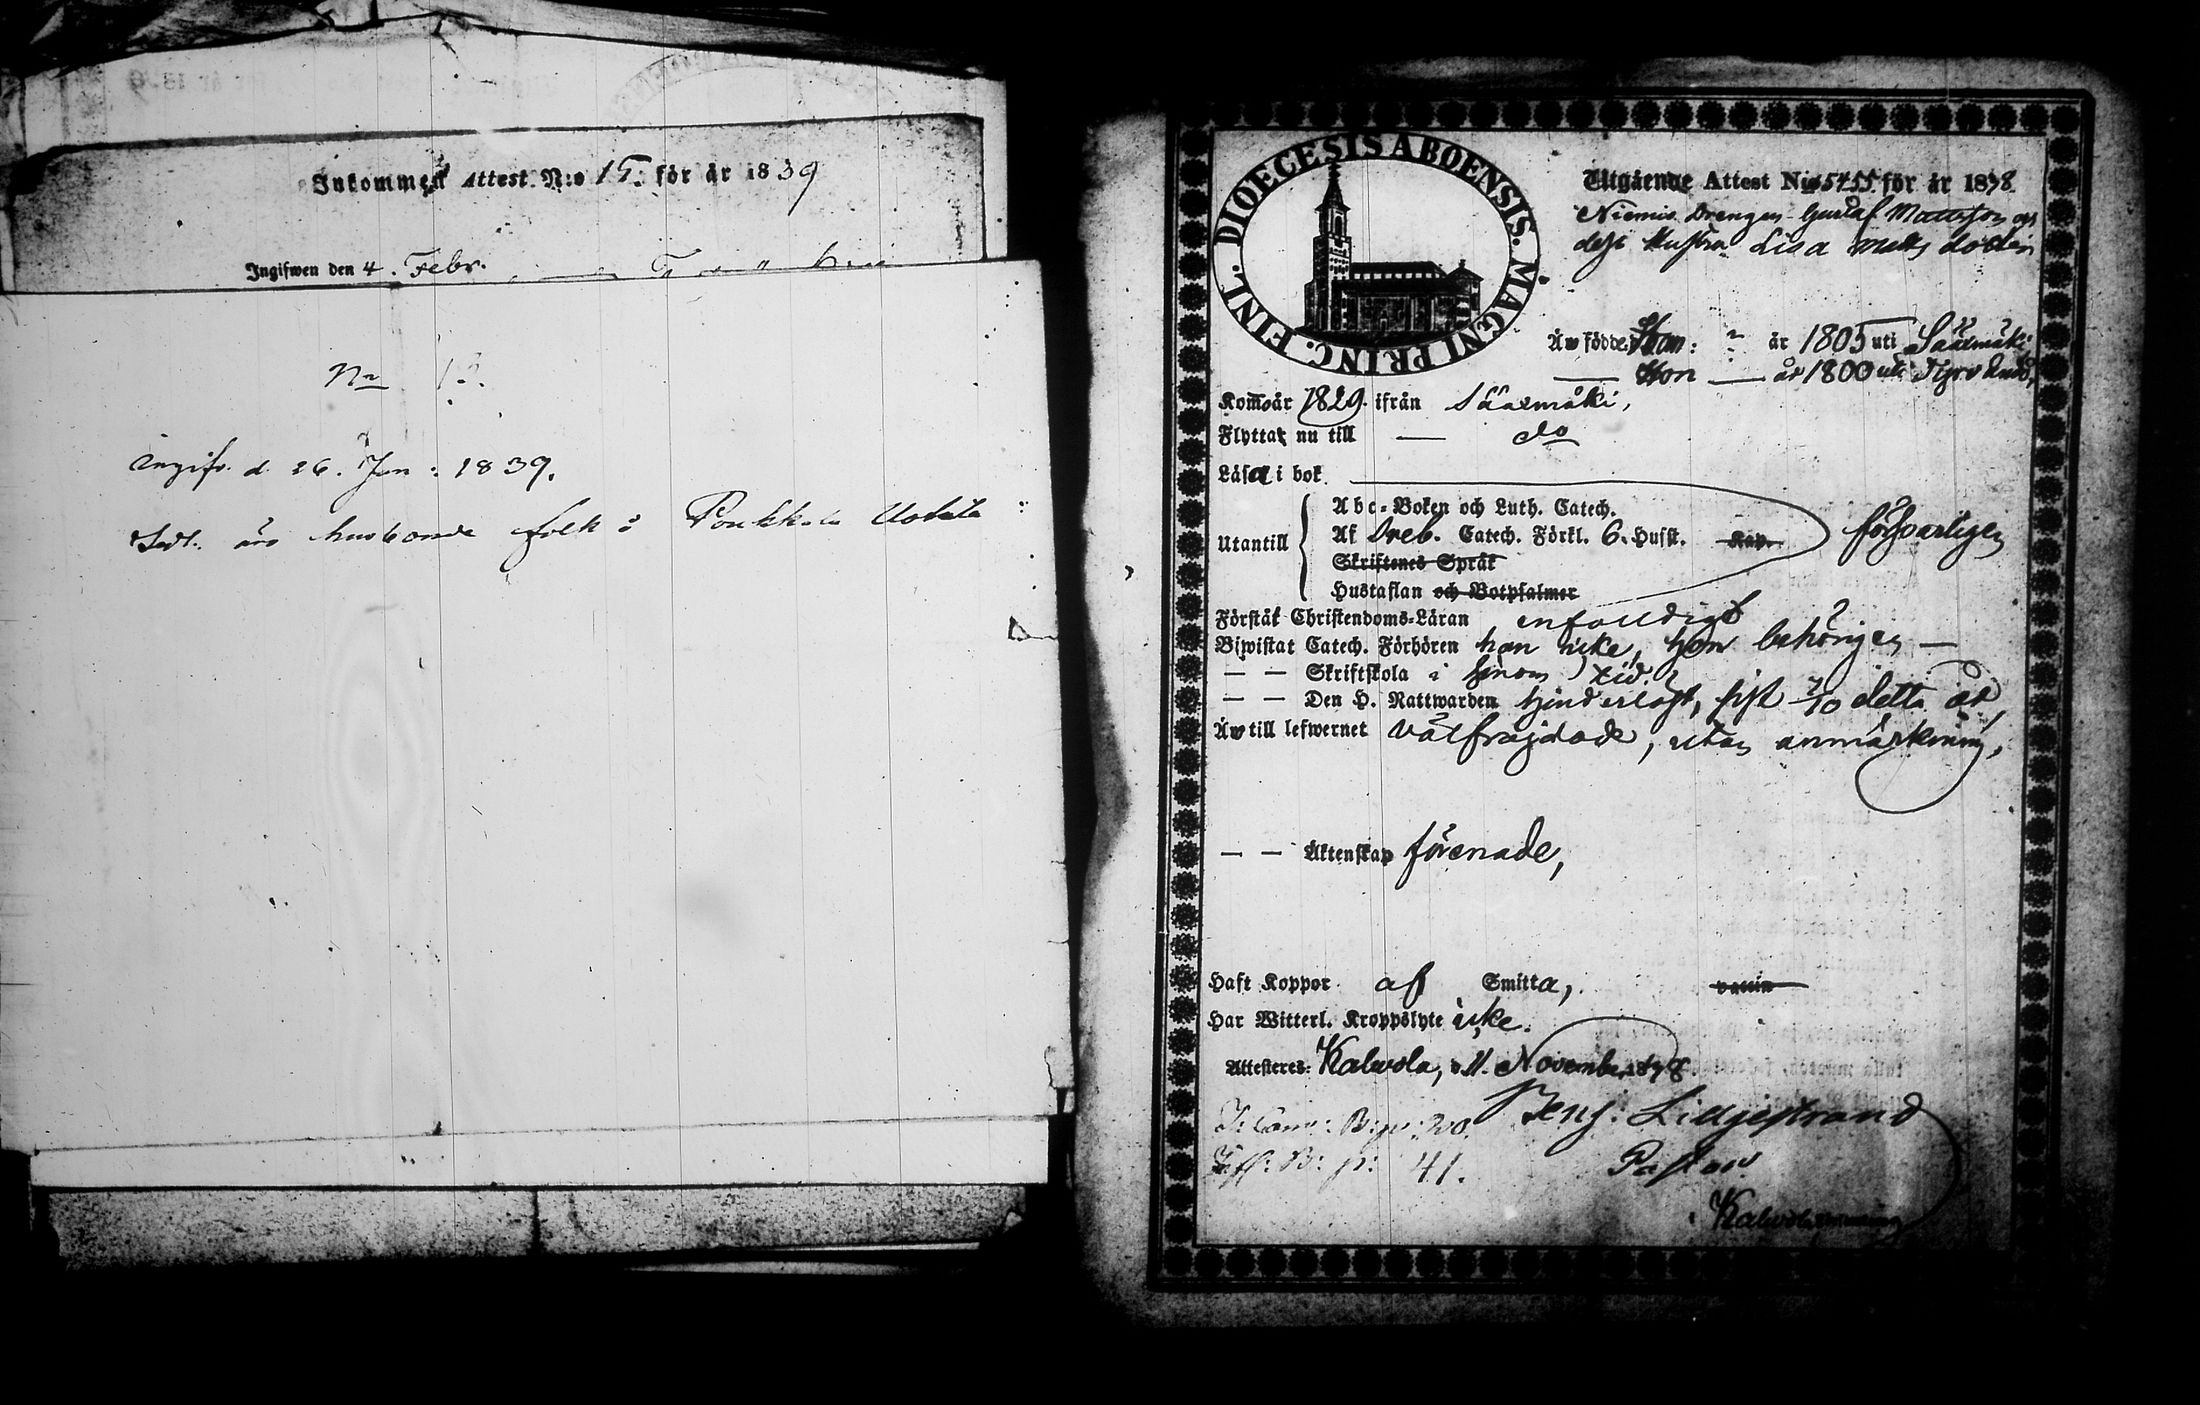 Inkommen Attest N:o 15. för år 1839
Ingifwen den 4. Febr.
No 13.
Ingifv. d. 26. Jan: 1839.
äro husbonde folk i
DIOECESIS ABOENSIS. MAGNI PRINC. FINL.
Utgående Attest N:o 54 55 för år 1838
Niemis Drengen Gustaf Mattsson og
dess Hustru Lisa Matts dotter
Äro födde, Han: år 1805 uti Sääxmäki
Hon år 1800 uti
Kommo år 1829 ifrån Sääxmäki,
Flytta nu till — do
Läsa i bok
Abc-Boken och Luth. Catech.
Utantill
Af Sveb. Catech. Förkl. 6. Husst. Kap.
Skriftenes Språk
Hustaflan och Botpsalmer
försvarligen
Förstå Christendoms-Läran enfaldigt
Biwistat Catech. Förhören han icke, hon behörigen —
— — Skriftskola i sinom tid.
— — Den H. Nattwarden hinderlöst, sist 7/10 detta år
Äro till lefwernet välfräjdade, utan anmärkning,
— — Äktenskap förenade,
Haft Koppor af Smitta, vaccin
Har Witterl. Kroppslyte icke.
Attesteres: Kalvola, d. 11. November 1838
Benj: Lilljestrand
J: Com: B: p: 200.
Infl: B: p: 41.
Pastor
Kalvola